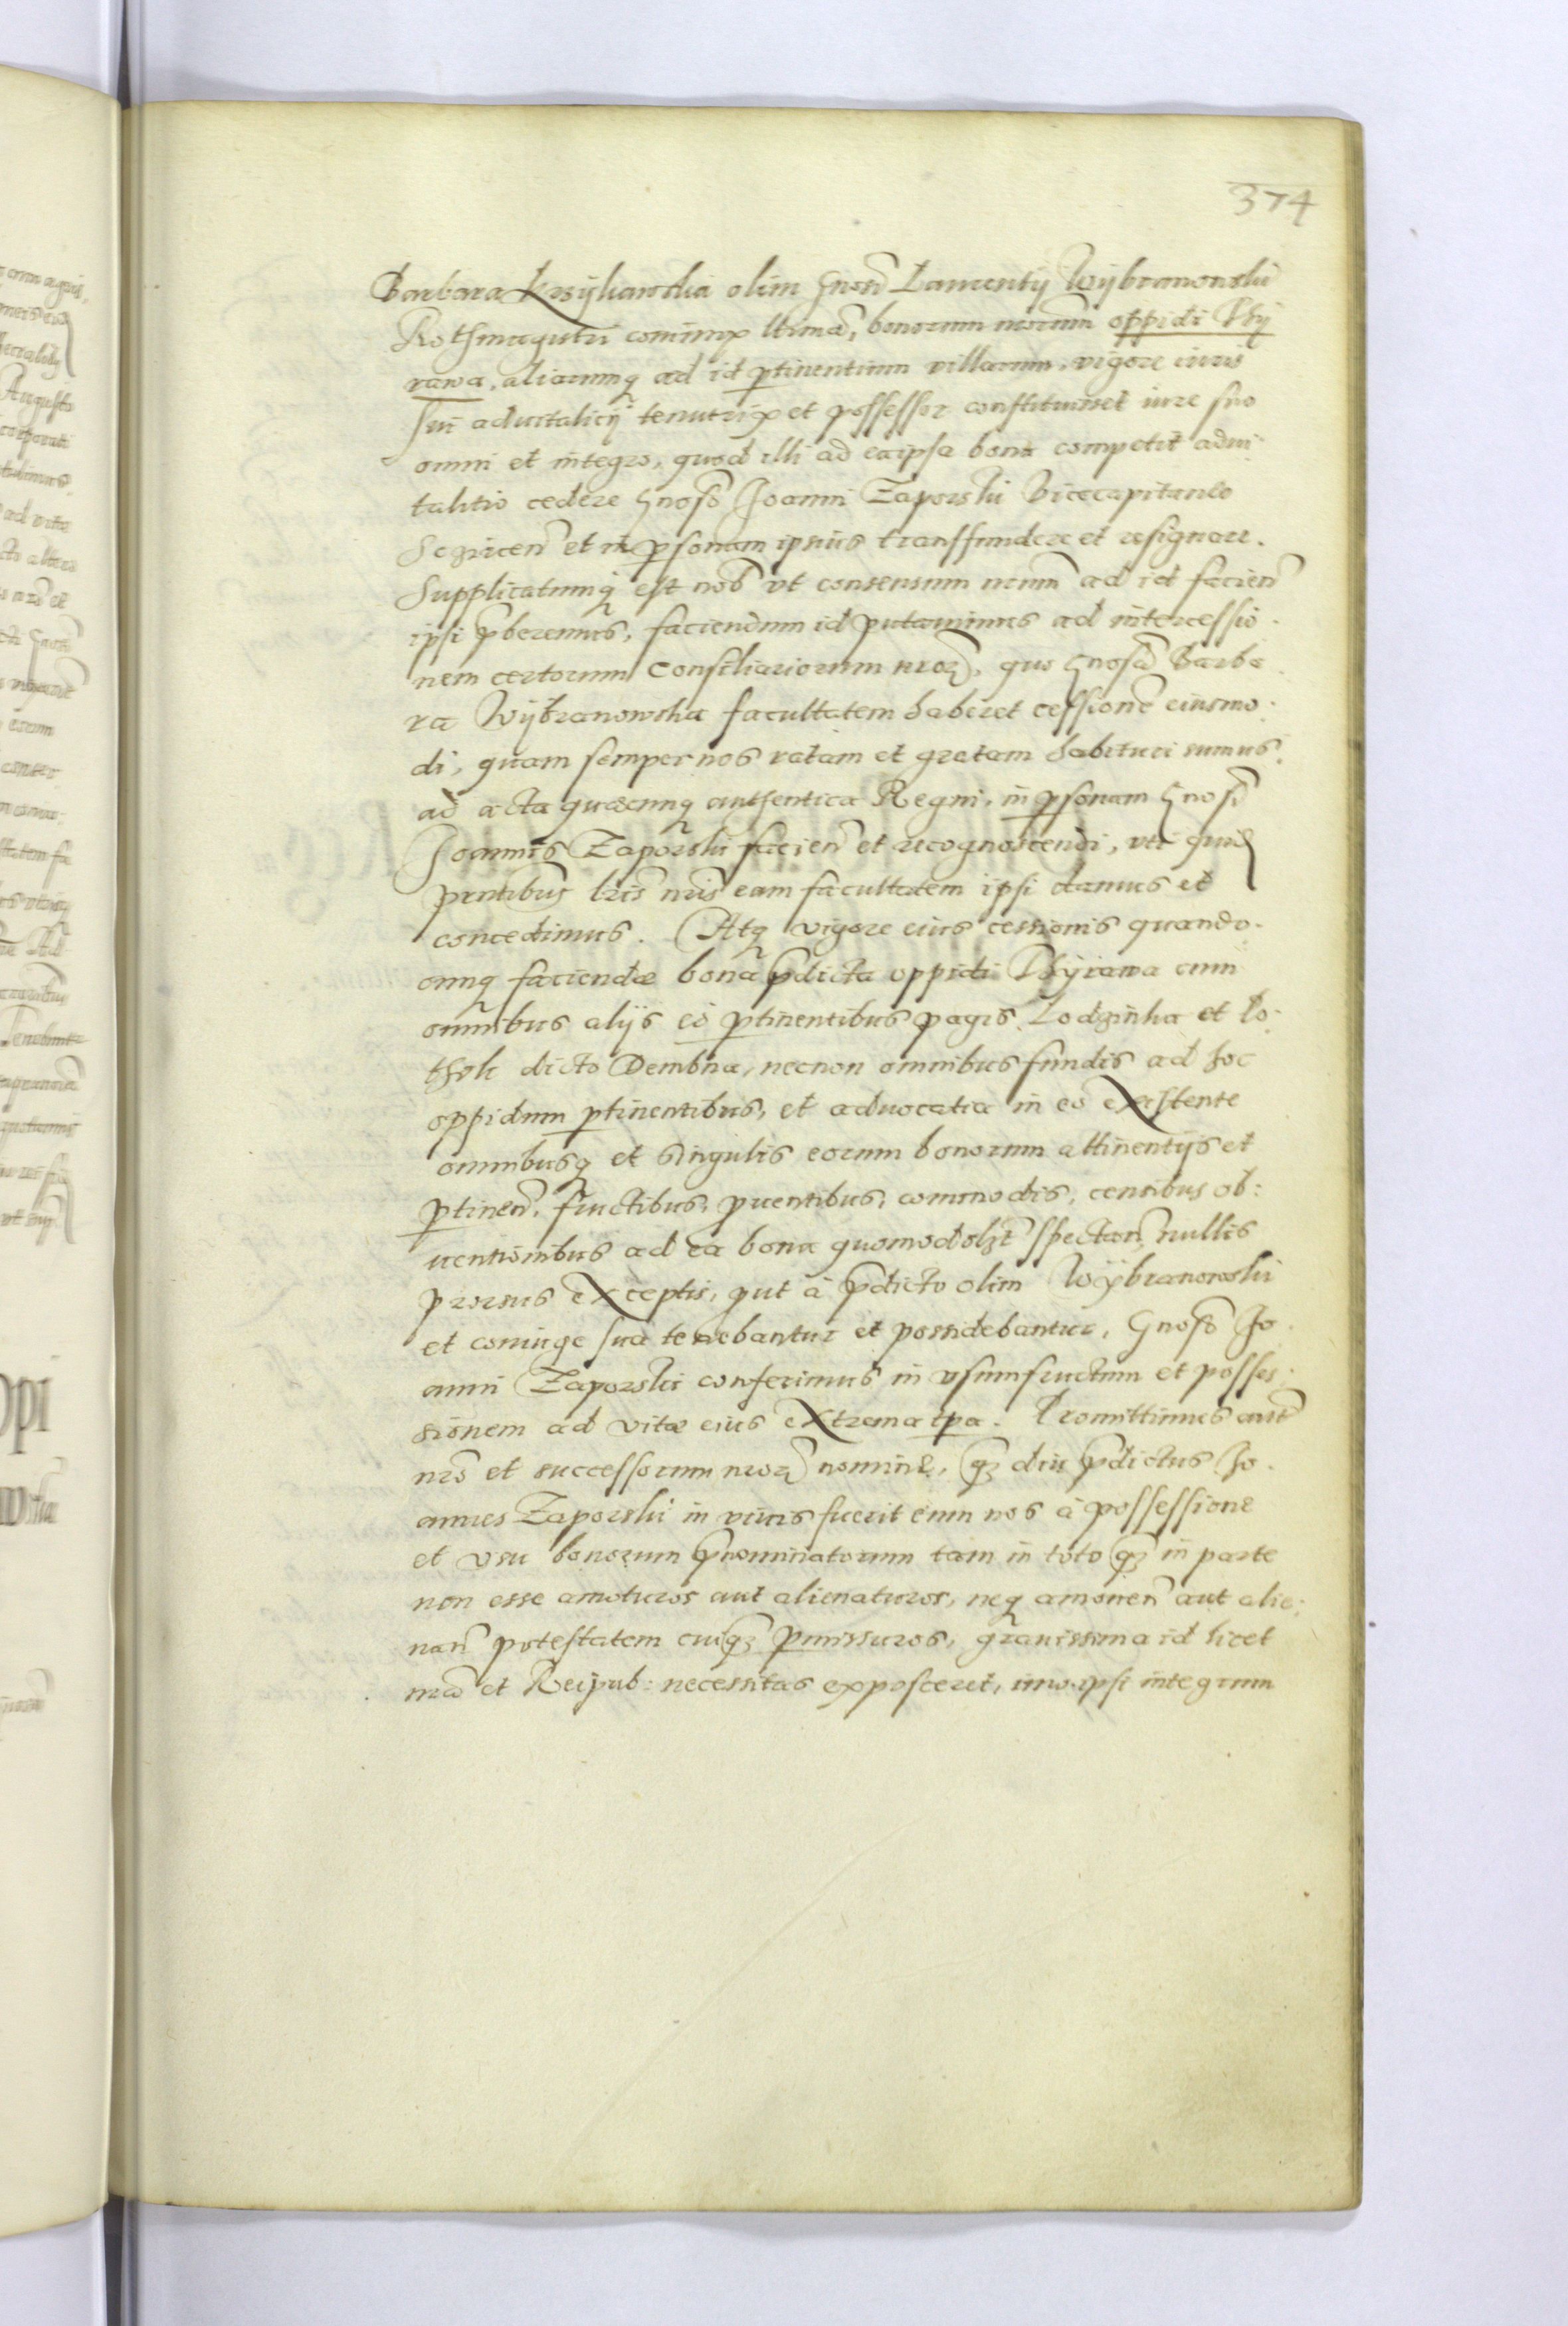 374
Barbara Krzyliawska olim Gnosi Laurentij Wijbranowski
Rothmagistri coniunx ltima, bonorum nrorum oppidi Thij
rawa, aliarumq ad id ptinentium villarum, vigore iuris
sui aduitalicij tenutrix et possessor constituisset iure suo
omni et integro, quod illi ad eaipsa bona competit adui
talitio cedere Gnoso Joanni Zaporski Vicecapitaneo
et in psonam ipsius transfundere et resignare.
Supplicatumq est nob vt consensum nrum ad id facien
ipsi pberemus, faciendum id putauimus ad intercessio
nem certorum Consiliariorum nror, quo Gnosa Barba
ra Wijbranowska facultatem haberet cessione eiusmo
di, quam semper nos ratam et gratam habituri sumus
ad acta quaecunq authentica Regni, in psonam Gnosi
Joannis Zaporski facien et recognoscendi, vti quid
pntibus lris nris eam facultatem ipsi damus et
concedimus. Atq vigore eius cessionis quando
cunq faciendae bona pdicta oppidi Thijrawa cum
omnibus alijs eo ptinentibus pagis Lodzinka et Po
thok dicto Dembna, necnon omnibus fundis ad hoc
oppidum ptinentibus, et aduocatia in eo existente
omnibusq et singulis eorum bonorum attinentijs et
ptinen, fructibus, puentibus, commodis, censibus ob:
uentionibus ad ea bona quomodolt spectan nullis
prorsus exceptis, put à pdicto olim Wijbranowski
et coniuge sua tenebantur et possidebantur, Gnoso Jo
anni Zaporski conferimus in vsumfructum et posses
sionem ad vitae eius extrema tpa. Promittimus aut
nro et successorum nror nomine, q diu pdictus Jo
annes Zaporski in viuis fuerit eum nos à possessione
et vsu bonorum pnominatorum tam in toto q in parte
non esse amoturos aut alienaturos, neq amouen aut alie:
nan potestatem cuiq pmissuros, grauissima id licet
nra et Reipub: necessitas exposceret, imo ipsi integrum